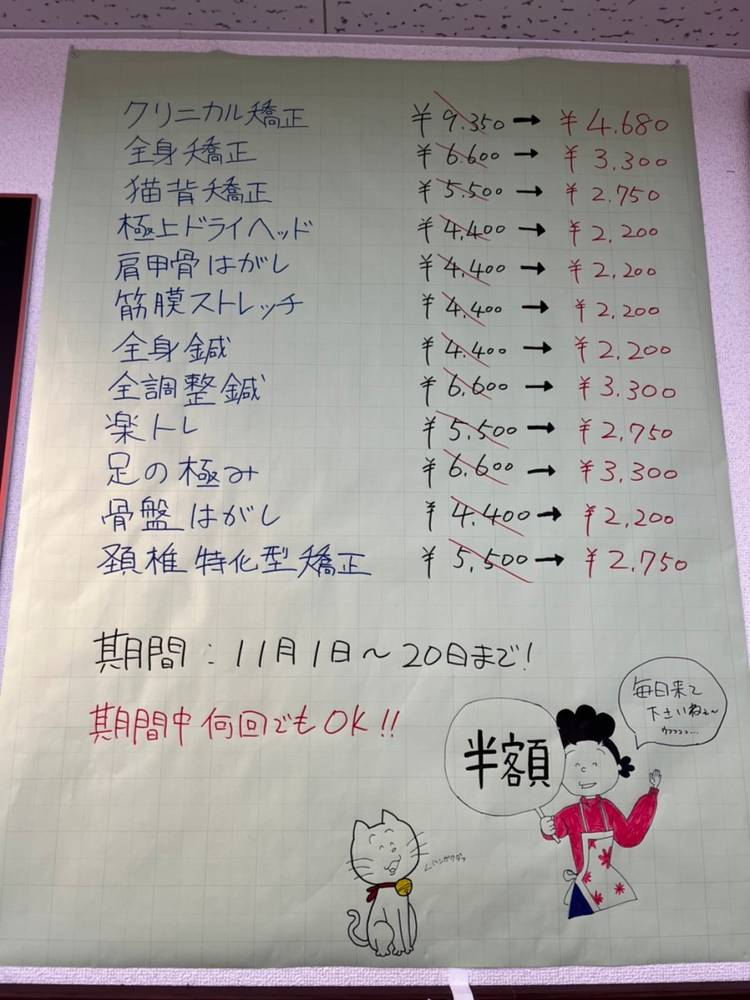 クリニカル矯正 ¥9.350→¥4.680
全身矯正 ¥6.600→¥3.300
猫背矯正 ¥5.500→¥2.750
極上ドライヘッド ¥4,400→¥2,200
肩甲骨はがし ¥4.400→¥2.200
筋膜ストレッチ ¥4.400→¥2,200
全身鍼 ¥4.400→¥2,200
全調整鍼 ¥6.600→¥3.300
楽トレ ¥5.500→¥2,750
足の極み ¥6.600→¥3,300
骨盤はがし ¥4.400→¥2,200
頚椎特化型矯正 ¥5,500→¥2.750
期間:11月1日～20日まで!
期間中何回でもOK!!
毎日来て
下さいねぇ～
半額